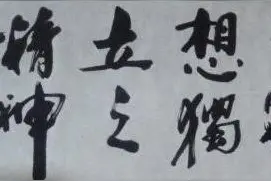 想獨
立之
精神